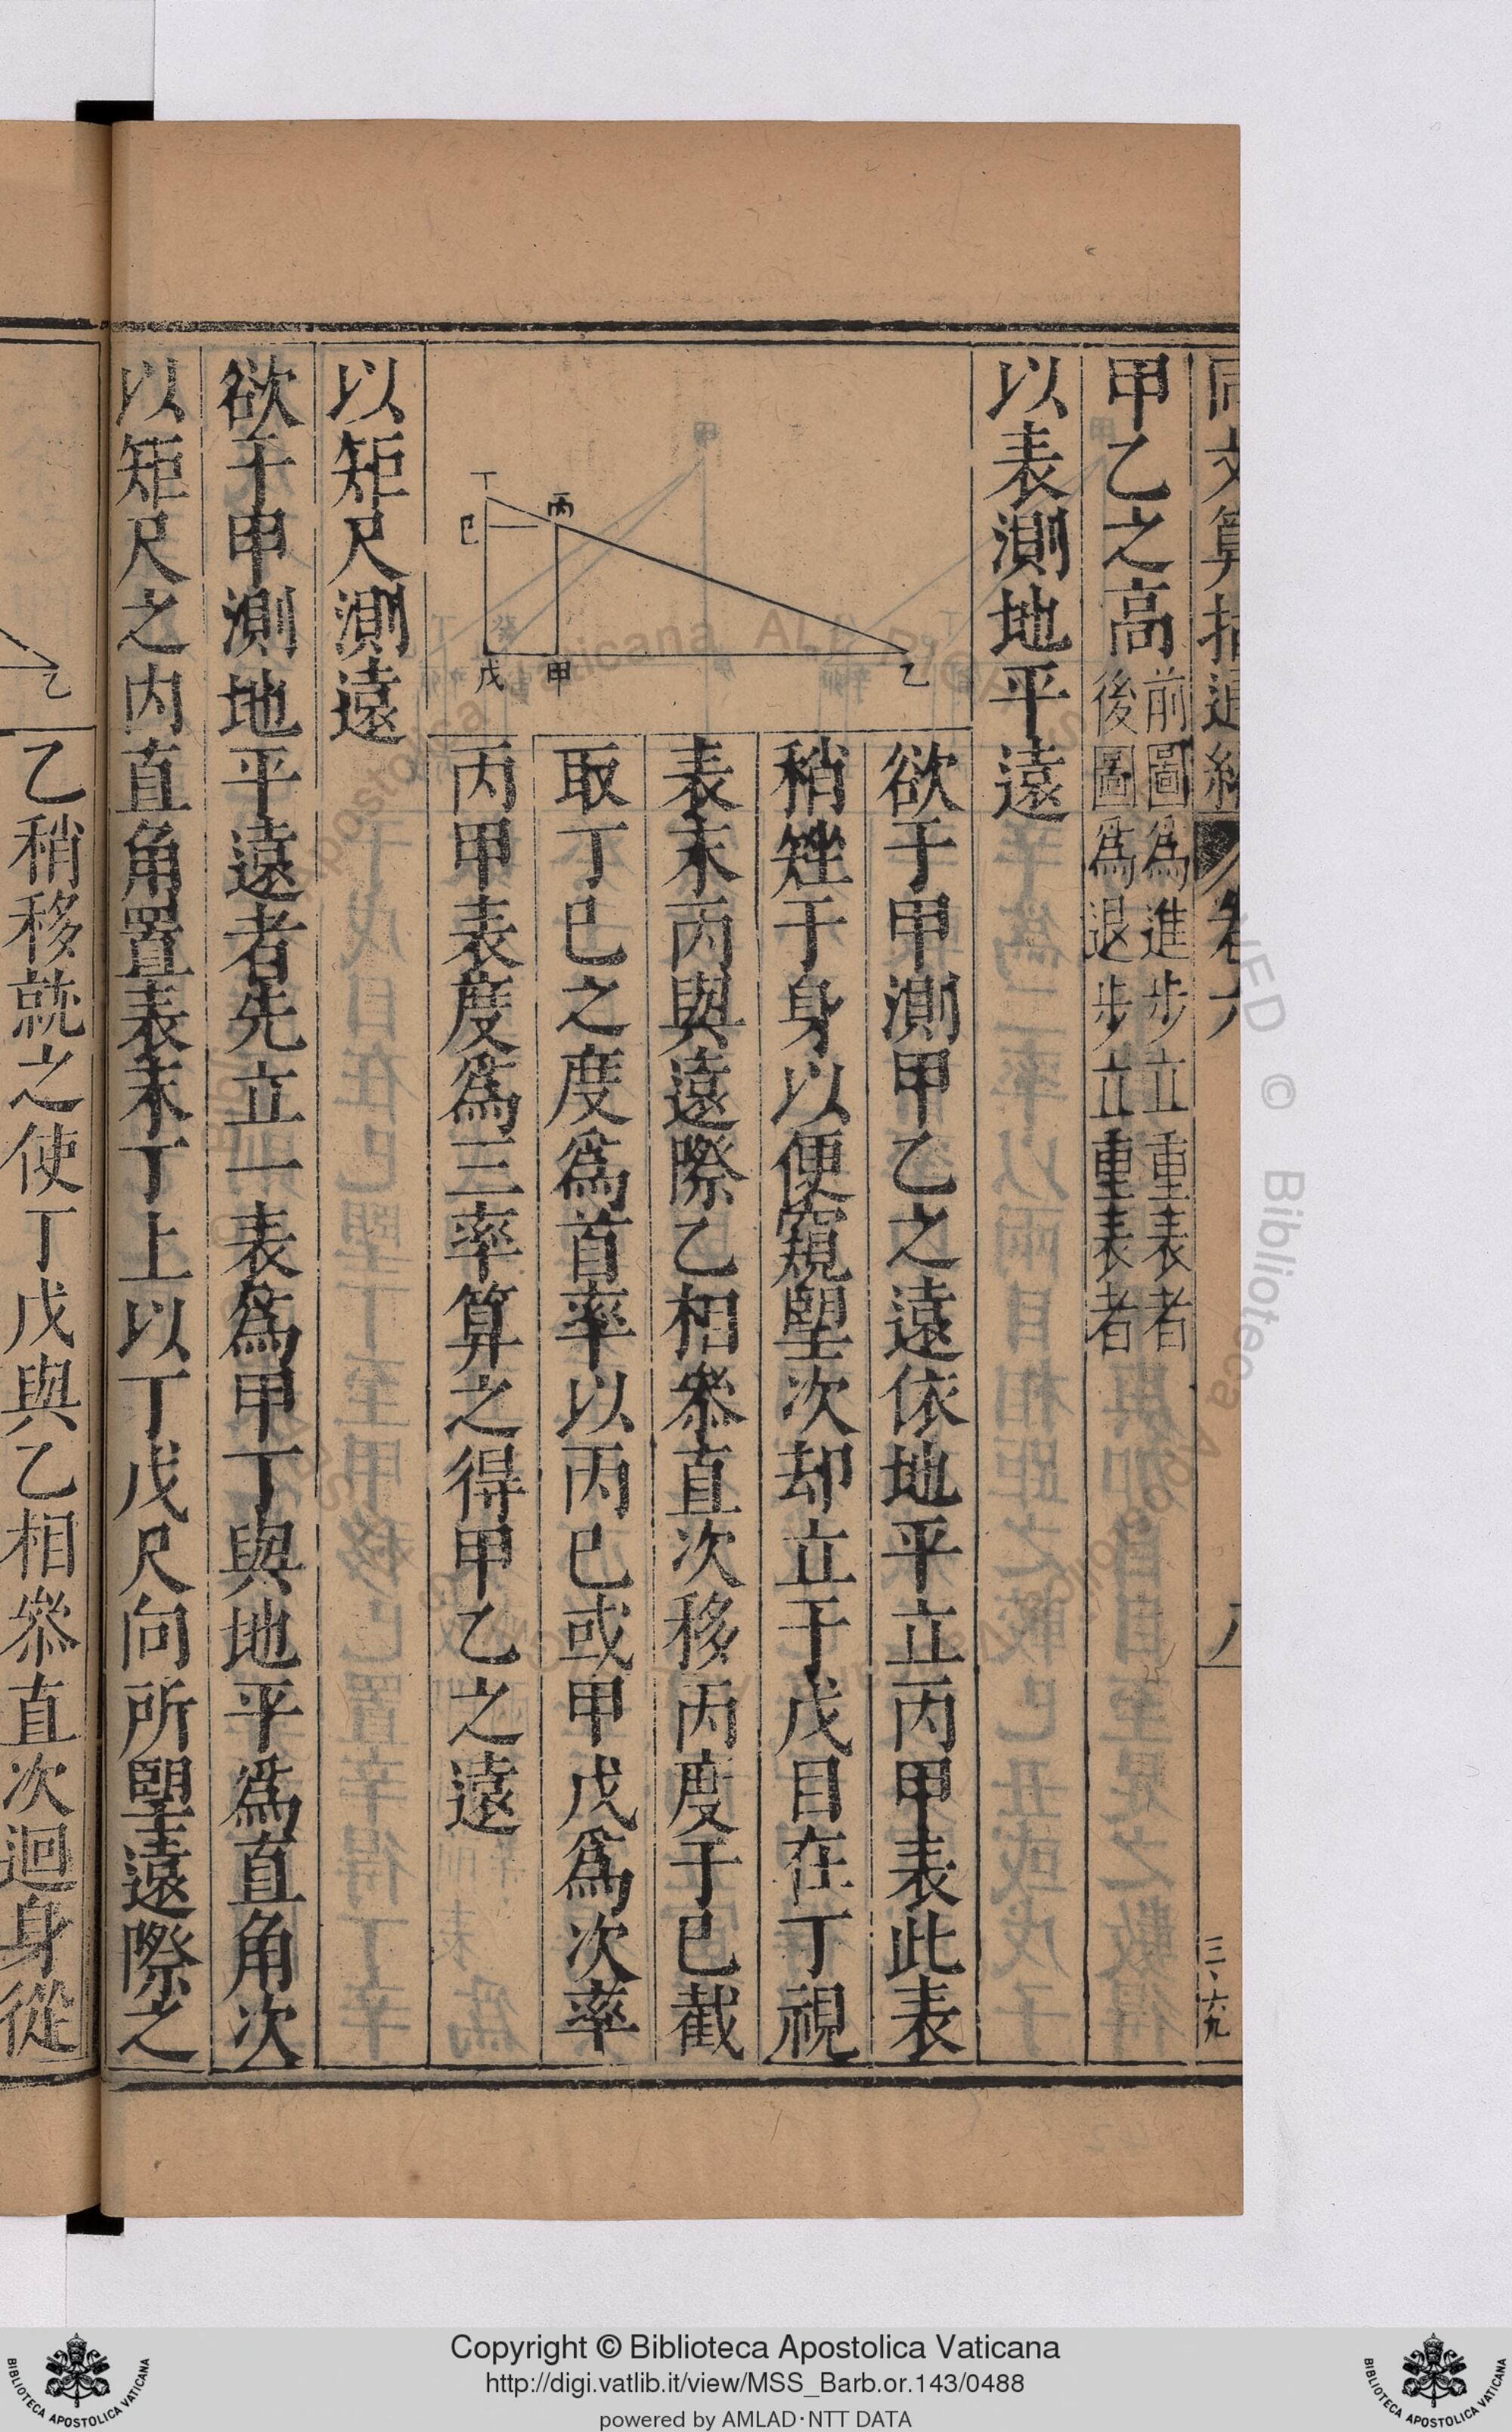 甲乙之高前圖爲進步立重表者後圖爲退步立重表者
以表測地平遠
丁
丙
己
戊
甲
乙
欲于甲測甲乙之遠依地平立丙甲表此表
稍矬于身以便窺望次却立于戊目在丁視
表末丙與遠際乙相叅直次移丙度于已截
取丁已之度爲首率以丙已或甲戊爲次率
丙甲表度爲三率算之得甲乙之遠
以矩尺測遠
欲于甲測地平遠者先立一表爲甲丁與地平爲直角次
以矩尺之内直角置表末丁上以丁戊尺向所望遠際之
乙
乙稍移就之使丁戊與乙相叅直次迴身從
三、六九
Copyright © Biblioteca Apostolica Vaticana
http://digi.vatlib.it/view/MSS_Barb.or.143/0488
powered by AMLAD·NTT DATA
BIBLIOTECA APOSTOLICA VATICANA
BIBLIOTECA APOSTOLICA VATICANA